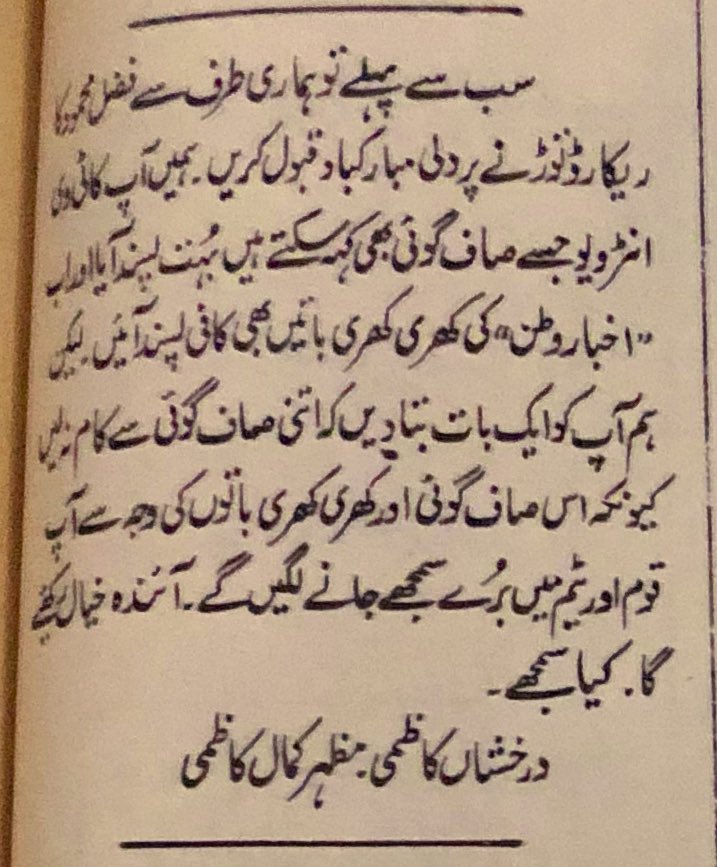 سب سے پہلے تو ہماری طرف سے فضل محمود کا
ریکارڈ توڑنے پر دلی مبارکباد قبول کریں۔ ہمیں آپ کا ٹی وی
انٹرویو جسے صاف گوئی بھی کہہ سکتے ہیں بہت پسند آیا اور اب
"اخبار وطن" کی کھری کھری باتیں بھی کافی پسند آئیں لیکن
ہم آپ کو ایک بات بتا دیں کہ اتنی صاف گوئی سے کام نہ لیں
کیونکہ اس صاف گوئی اور کھری کھری باتوں کی وجہ سے آپ
قوم اور ٹیم میں بُرے سمجھے جانے لگیں گے۔ آئندہ خیال رکھیے
گا۔ کیا سمجھے۔
درخشاں کاظمی۔ مظہر کمال کاظمی